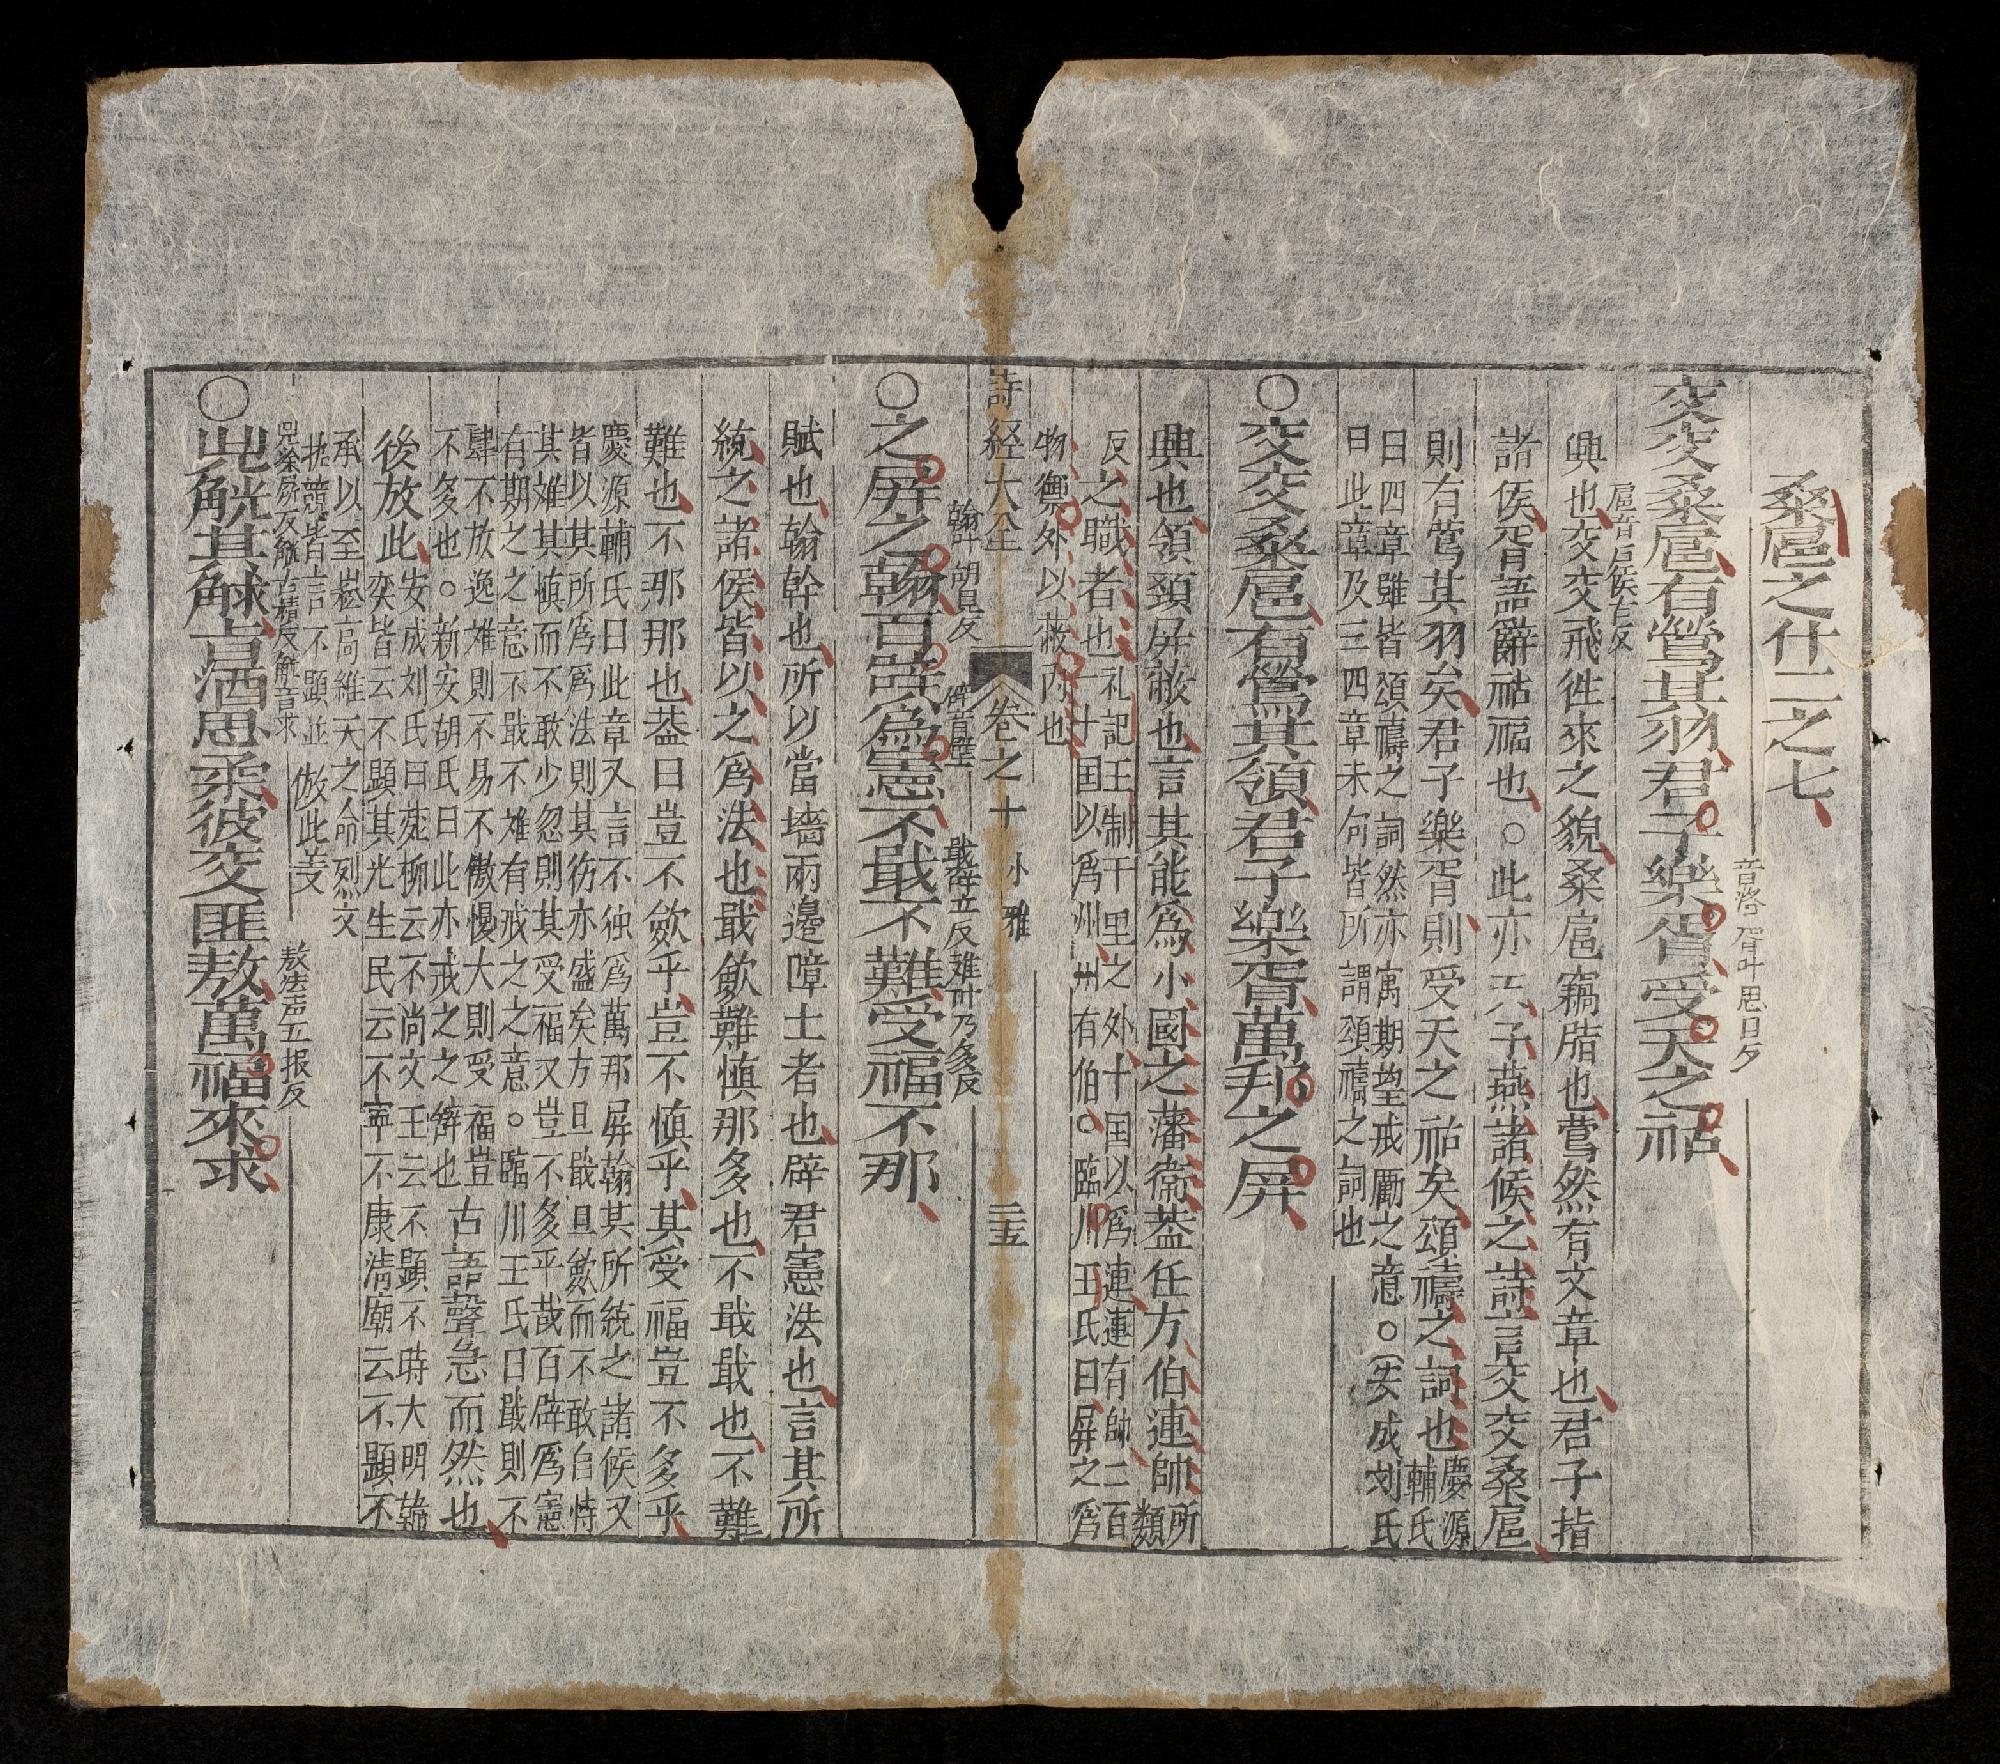 桑扈之什二之七
交交桑扈有鶯其羽君子樂胥受天之祜
扈音戶候古反
音洛胥叶思呂夕
興也交交飛徃來之貌桑扈竊脂也鶯然有文章也君子指
諸侯胥語辭祜福也○此亦天子燕諸侯之詩言交交桑扈
則有鶯其羽矣君子樂胥則受天之祜矣頌禱之詞也慶源輔氏
曰四章雖皆頌禱之詞然亦寓期望戒勵之意○安成刘氏
曰此章及三四章末句皆所謂頌禱之詞也
○交交桑扈有鶯其領君子樂胥萬邦之屏
興也領頚屏蔽也言其能為小國之藩衛盖任方伯連帥所類
反之職者也礼記王制千里之外十国以爲連連有帥二百
一十国以爲州州有伯○臨川王氏曰屏之爲
物禦外以蔽内也
詩经大全 卷之十 小雅 二五
○之屏之翰百辟為憲不戢不難受福不那
翰叶胡見反 辟音璧 戢莊立反難叶乃多反
賦也翰幹也所以當墻兩邉障土者也辟君憲法也言其所
統之諸侯皆以之爲法也戢斂難慎那多也不戢戢也不難
難也不那那也盖曰豈不斂乎豈不慎乎其受福豈不多乎
慶源輔氏曰此章又言不独爲萬邦屏翰其所統之諸侯又
皆以其所爲法則其彷亦盛矣方且戢且斂而不敢自恃
其难其慎而不敢少忽則其受福又豈不多乎哉百辟爲憲
有期之之意不戢不难有戒之之意○臨川王氏曰戢則不
肆不放逸难則不易不傲慢大則受福豈
不多也○新安胡氏曰此亦戒之之辭也古語聲急而然也
後放此安成刘氏曰菀柳云不尚文王云不顯不時大明韓
奕皆云不顯其光生民云不寧不康清廟云不顯不
承以至崧高維天之命烈文
执競皆言不顯並倣此義
○兕觥其觩旨酒思柔彼交匪敖萬福來求
兕徐履反觥古橫反觩音求
敖去声五报反